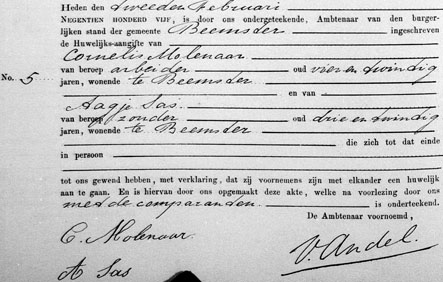 Heden den tweeden Februari
NEGENTIEN HONDERD VIJF, is door ons ondergeteekende, Ambtenaar van den burger-
lijken stand der gemeente Beemster ingeschreven
de Huwelijks-aangifte van
Cornelis Molenaar
van beroep arbeider oud vier en twintig
No. 5 jaren, wonende te Beemster
en van
Aagje Sas
van beroep zonder oud drie en twintig
jaren, wonende te Beemster
die zich tot dat einde
in persoon
tot ons gewend hebben, met verklaring, dat zij voornemens zijn met elkander een huwelijk
aan te gaan. En is hiervan door ons opgemaakt deze akte, welke na voorlezing door ons
met de comparanten is onderteekend.
De Ambtenaar voornoemd,
C. Molenaar.
V. Andel.
A Sas